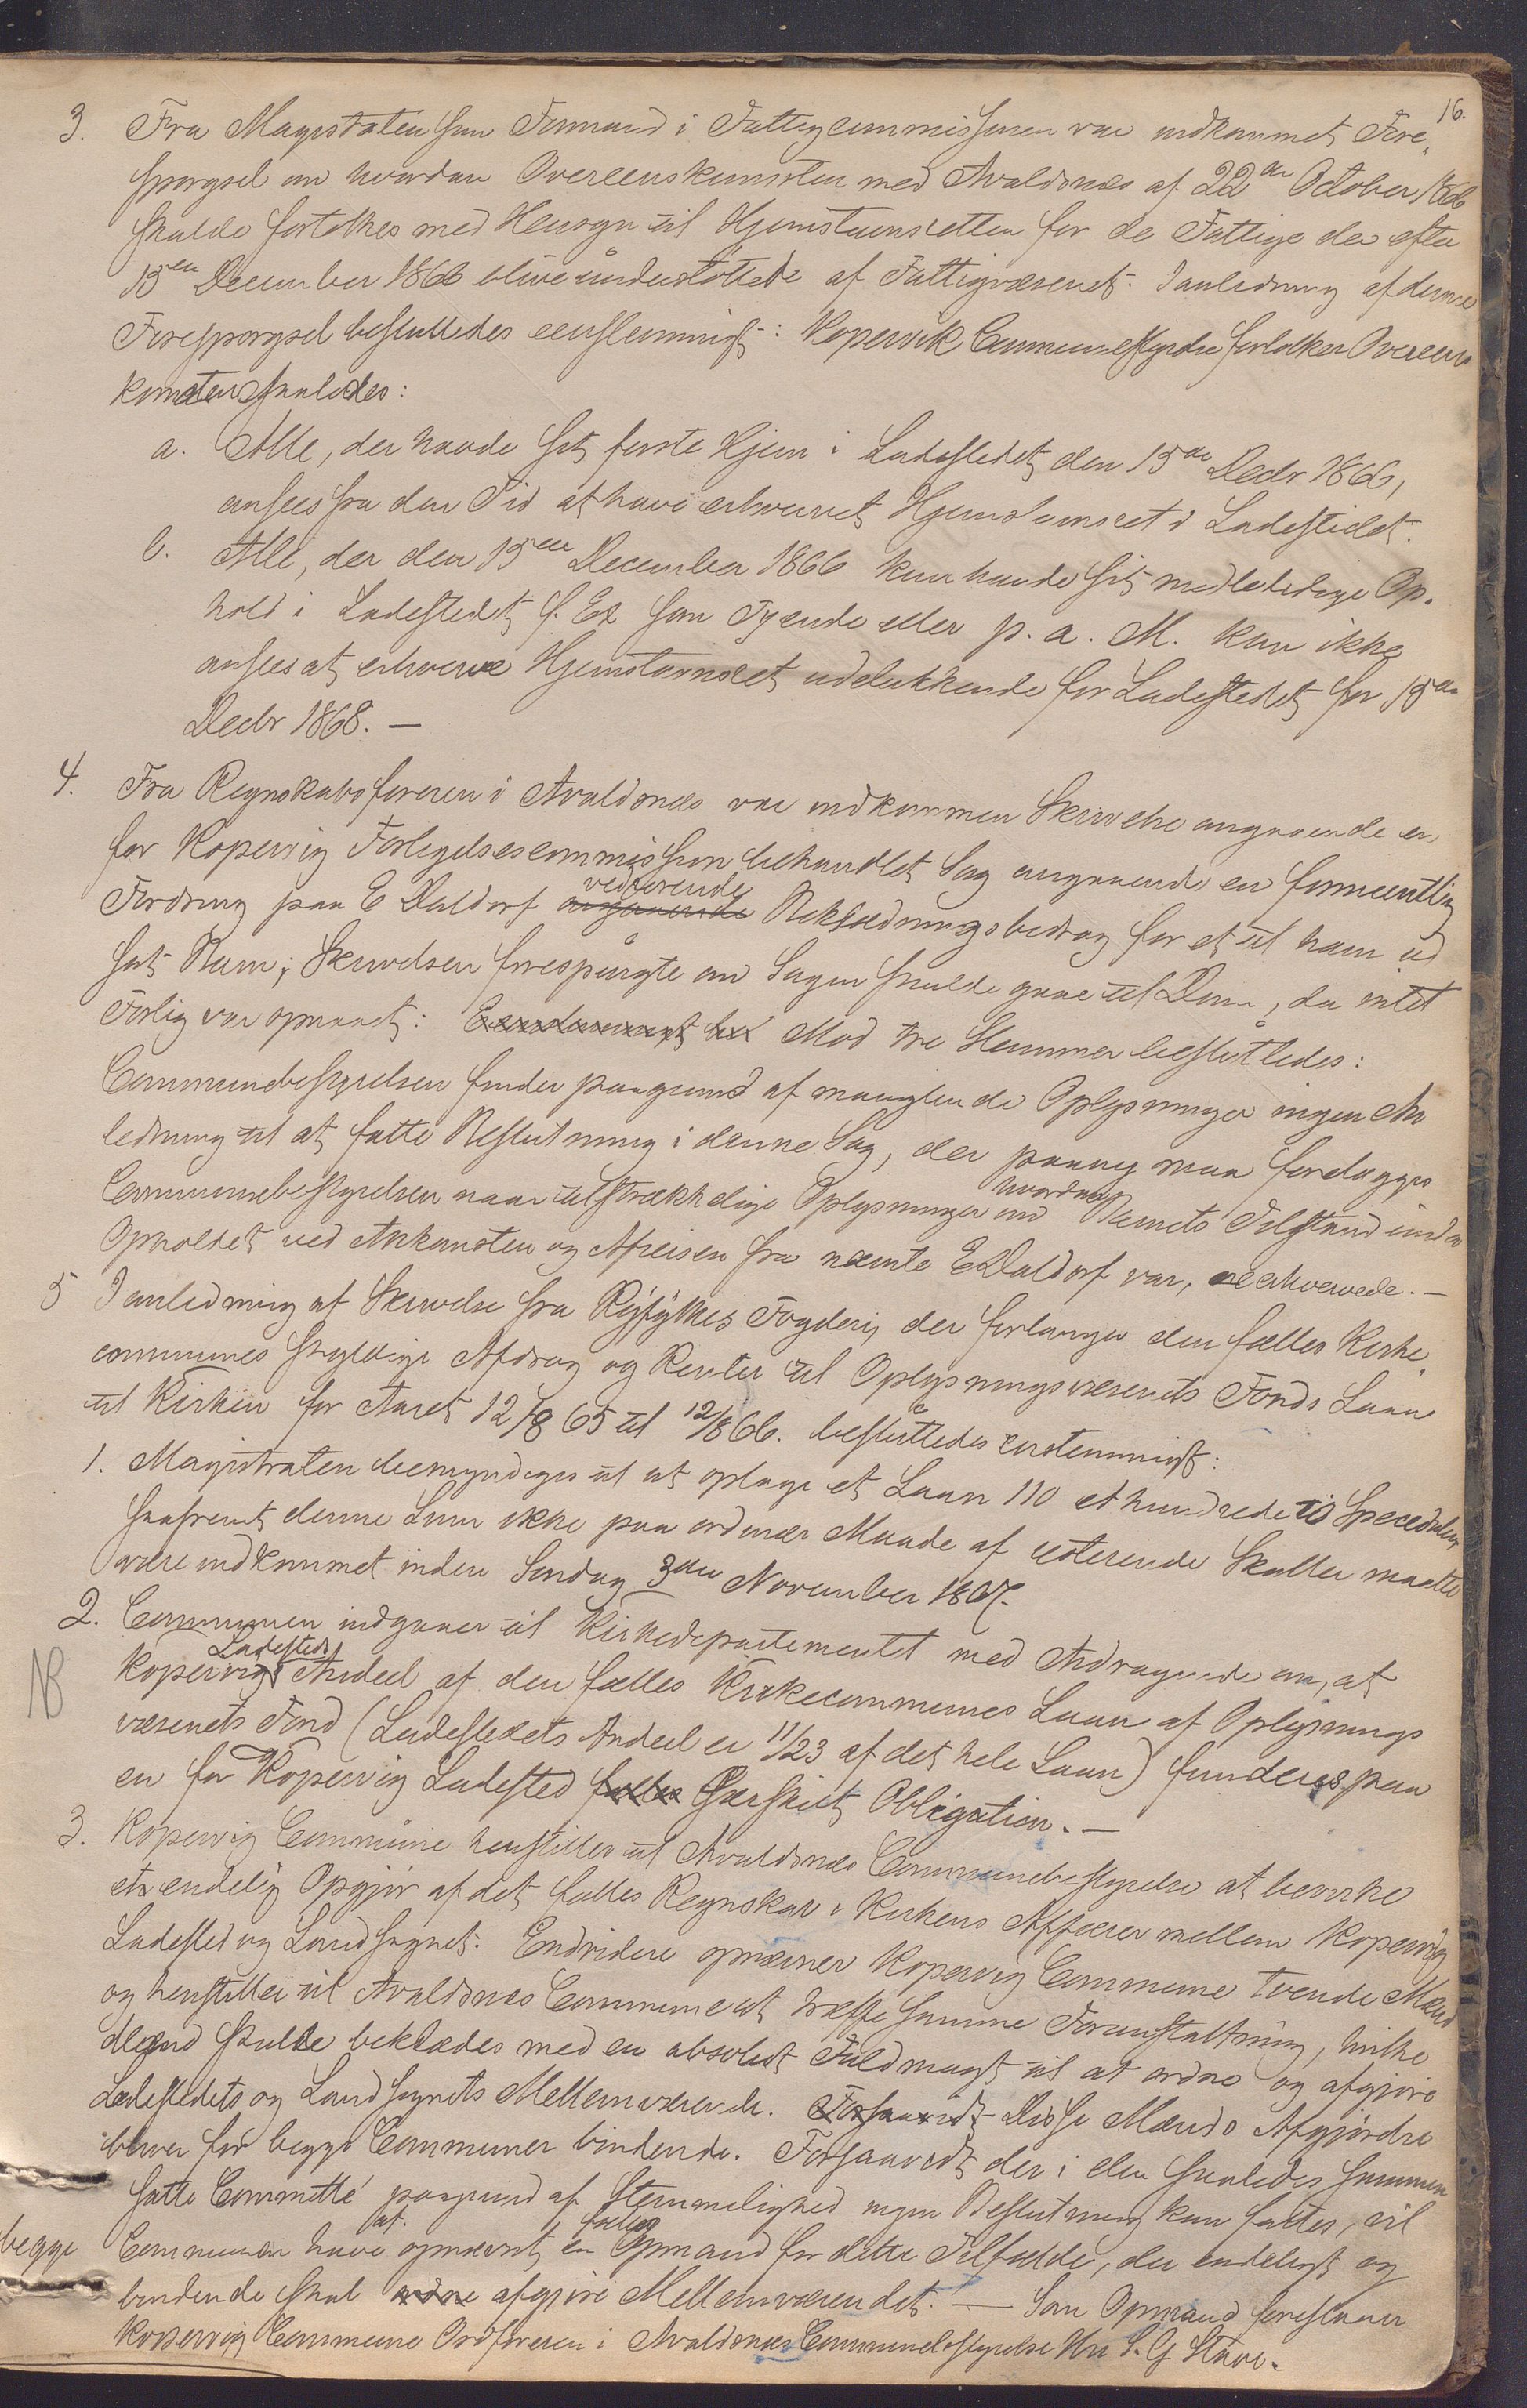 16.
3. Fra Magistraten som Formand i Fattigcommissionen var indkommet Fore-
spørgsel om hvordan Overeenskomsten med Avaldsnæs af 22de October 1866
skulde fortolkes med Hensyn til Hjemstavnsretten for de Fattige der efter
15en December 1866 blive understøttede af Fattigvæsenet. I anledning af denne
Forespørgsel besluttedes eenstemmigt: Kopervik Communestyrelse fortolker Overeens
komsten saaledes:
a. Alle, der havde sit første Hjem i Ladestedet den 15de Decbr 1866,
ansees fra den Tid at have erhvervet Hjemstavnsret i Ladestedet.
b. Alle, der den 15den December 1866 kun havde sit midlertidige Op-
hold i Ladestedet f. Ex som Tyende eller p. a. M. kan ikke
ansees at erhverve Hjemstavnsret udelukkende for Ladestedet før 15de
Decbr 1868. —
4. Fra Regnskabsføreren i Avaldsnæs var indkommen Skrivelse angaaende en
for Kopervig Forligelsescommission behandlet Sag angaaende en formeentlig
Fordring paa E Valdorf angaaende vedrørende Beklædningsbidrag for et til ham ud
sat Barn; Skrivelsen forespurgte om Sagen skulde gaae til Dom, da intet
Forlig var opnaaet: Mod tre Stemmer besluttedes:
Communebestyrelsen finder paagrund af manglende Oplysninger ingen An
ledning til at fatte Beslutning i denne Sag, der paany maa forelægges
Communebestyrelsen naar tilstrækkelige Oplysninger om hvordan Barnets Tilstand under
Opholdet ved Ankomsten og Afreisen fra nævnte E Valdorf var, erhvervede. —
5 I anledning af Skrivelse fra Ryfylkes Fogderi, der forlanger den fælles Kirke
communes skyldige Afdrag og Renter til Oplysningsvæsenets Fonds Laan
til Kirken for Aaret 12/8 65 til 12/8 66. besluttedes enstemmigt:
1. Magistraten bemyndiges til at optage et Laan 110 et hundrede ti Speciedaler
saafremt denne Sum ikke paa ordinær Maade af resterende Skatter maatte
være indkommet inden Søndag 3die November 1867.
2. Communen indgaaer til Kirkedepartementet med Andragende om, at
NB
Kopervig Ladesteds Andeel af den fælles Kirkecommunes Laan af Oplysnings
væsenets Fond (Ladestedets Andeel er 11/23 af det hele Laan) funderes paa
en for Kopervig Ladested fælles særskilt Obligation. —
3. Kopervig Commune henstiller til Avaldsnæs Communebestyrelse at bevirke
et endelig Opgjør af det fælles Regnskab i Kirkens Affærer mellem Kopervig
Ladested og Landsognet. Endvidere opnævner Kopervig Commune tvende Mænd
og henstiller til Avaldsnæs Commune at træffe samme Foranstaltning, hvilke
Mænd skulle beklædes med en absolut Fuldmagt til at ordne og afgjøre
Ladestedets og Landsognets Mellemværende. Forsaavidt Disse Mænds Afgjørelse
bliver for begge Communer bindende. Forsaavidt der i den saaledes sammen
satte Committé paagrund af Stemmelighed ingen Beslutning kan fattes, vil
begge Communer have at opnævnt en fælles Opmand for dette Tilfælde, der endeligt og
bindende skal ordne afgjøre Mellemværendet. — Som Opmand foreslaaer
Kopervig Commune Ordføreren i Avaldsnæs Communebestyrelse Hrr S. G Stave.